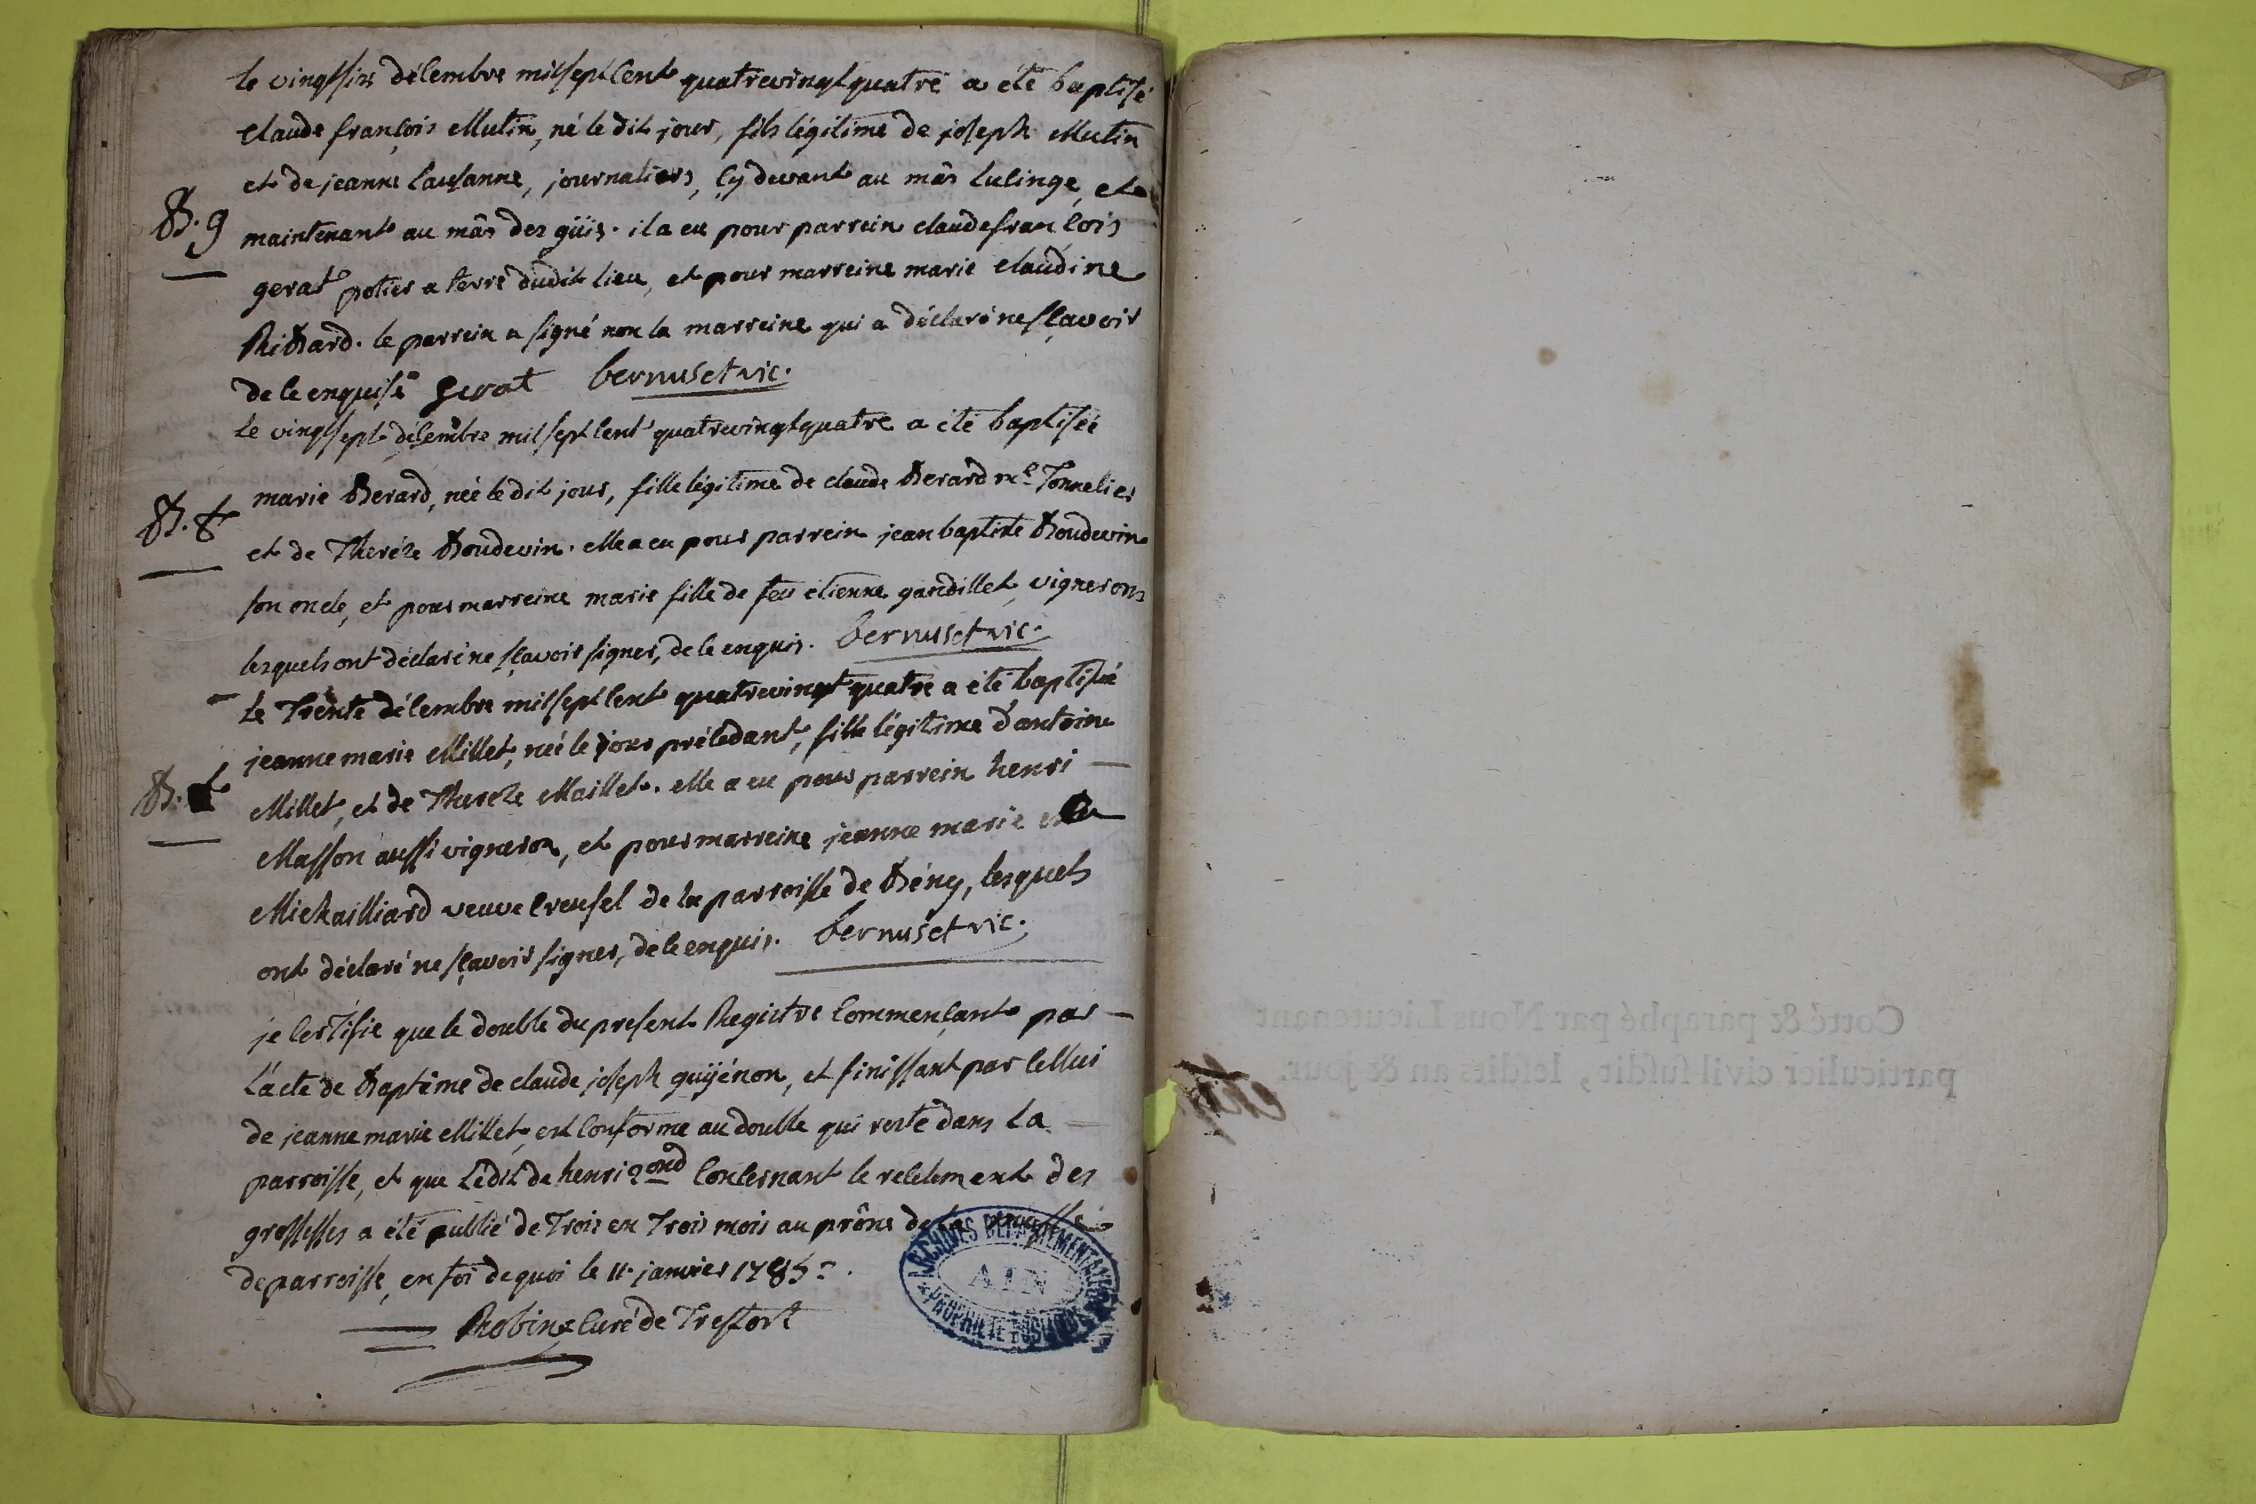 le vingtsix décembre milseptcent quatrevingtquatre a été baptisé
Claude françois Mutin, né le dit jour, fils légitime de joseph Mutin
et de jeanne Lauzanne, journaliers, cy devant au mâs Lucinge, et
B. 9 maintenant au mâs des güis. il a eu pour parrein claude francois
gerat potier a terre dudit lieu, et pour marreine marie claudine
Ribbard. le parrein a signé non la marreine qui a déclaré ne sçavoir
de le enquise Gerat bernuset vic.
Le vingtsept décembre milseptcent quatrevingtquatre a été baptisée
marie Berard, née le dit jour, fille légitime de claude Berard me Tonnelier
B. f et de Theréze Boudevin. elle a eu pour parrein jean baptiste Boudevin
son oncle, et pour marreine marie fille de feu étienne gandillet, vigneron
lesquels ont déclaré ne sçavoir signer, de le enquis. bernuset vic.
Le Trente décembre milseptcent quatrevingt quatre a été baptisée
jeanne marie Millet, née le jour précédant, fille légitime d'antoine
B. f Millet, et de Thereze Maillet. elle a eu pour parrein henri
Masson aussi vigneron, et pour marreine jeanne marie
Michailliard veuve Creusel de la parroisse de Bény, lesquels
ont déclaré ne sçavoir signer, de le enquis. bernuset vic.
je Certifie que le double du present Registre Commençant par
L'acte de Baptême de claude joseph guyénon, et finissant par Cellui
de jeanne marie Millet, est Conforme au double qui reste dans La
parroisse, et que L'édit de henri 2ond Concernant le recelement des
grossesses a été publié de Trois en Trois mois au prône de la messe
de parroisse, en foi de quoi le 11 janvier 1785.
Robin Curé de Treffort
ARCHIVES DEPARTEMENTALES
AIN
PROPRIETE PUBLIQUE
Cotté & paraphé par Nous Lieutenant
particulier civil susdit, lesdits an & jour.